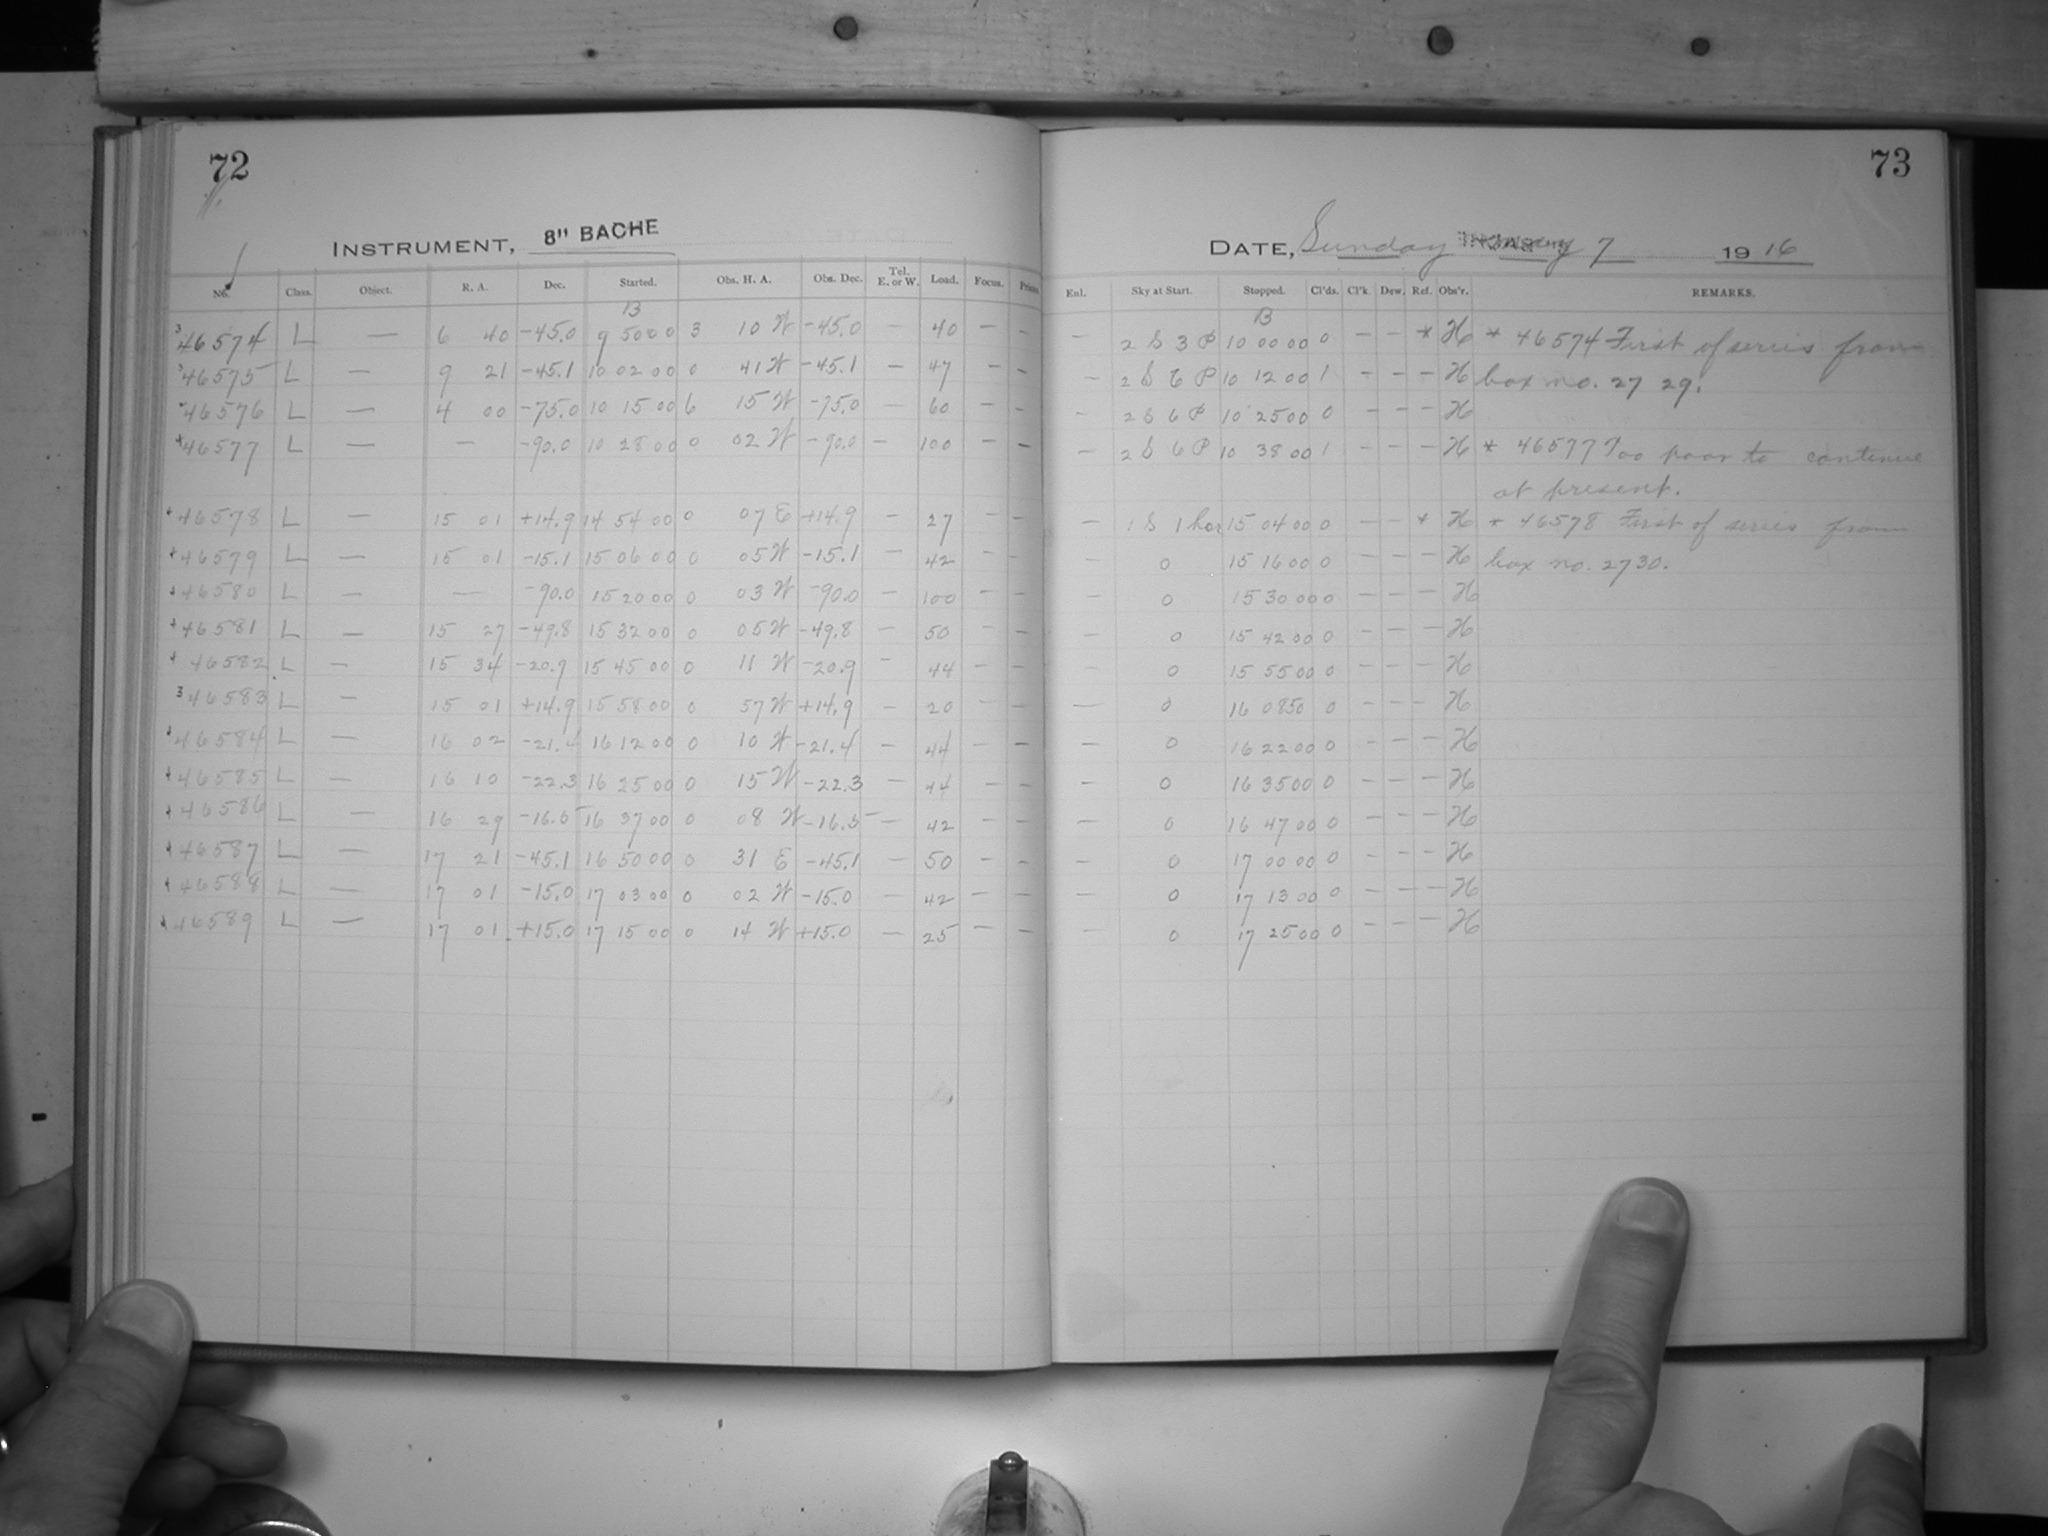 72
INSTRUMENT, 8" BACHE
No. Class. Object. R. A. Dec. Started. Obs. H. A. Obs. Dec. Tel. E. or W. Load. Focus. Prism
B
3 46574 L — 6 40 -45.0 9 50 00 3 10 W -45.0 — 40 — —
46575 L — 9 21 -45.1 10 02 00 0 41 W -45.1 — 47 — —
46576 L — 4 00 -75.0 10 15 00 6 15 W -75.0 — 60 — —
46577 L — — -90.0 10 28 00 0 02 W -90.0 — 100 — —
46578 L — 15 01 +14.9 14 54 00 0 07 E +14.9 — 27 — —
46579 L — 15 01 -15.1 15 06 00 0 05 W -15.1 — 42 — —
46580 L — — -90.0 15 20 00 0 03 W -90.0 — 100 — —
46581 L — 15 27 -49.8 15 32 00 0 05 W -49.8 — 50 — —
46582 L — 15 34 -20.9 15 45 00 0 11 W -20.9 — 44 — —
3 46583 L — 15 01 +14.9 15 58 00 0 57 W +14.9 — 20 — —
46584 L — 16 02 -21.4 16 12 00 0 10 W -21.4 — 44 — —
46585 L — 16 10 -22.3 16 25 00 0 15 W -22.3 — 44 — —
46586 L — 16 29 -16.5 16 37 00 0 08 W -16.5 — 42 — —
46587 L — 17 21 -45.1 16 50 00 0 31 E -45.1 — 50 — —
46588 L — 17 01 -15.0 17 03 00 0 02 W -15.0 — 42 — —
46589 L — 17 01 +15.0 17 15 00 0 14 W +15.0 — 25 — —
73
DATE, Sunday 7 1916
Enl. Sky at Start. Stopped. Cl'ds. Cl'k. Dew. Ref. Obs'r. REMARKS.
B
— 2 S 3 P 10 00 00 0 — — * H * 46574 First of series from
— 2 S 6 P 10 12 00 1 — — — H box no. 27 29.
— 2 S 6 P 10 25 00 0 — — — H
— 2 S 6 P 10 38 00 1 — — — H * 46577 Too poor to continue
at present.
— 1 S 1 hor 15 04 00 0 — — * H * 46578 First of series from
— 0 15 16 00 0 — — — H box no. 2730.
— 0 15 30 00 0 — — — H
— 0 15 42 00 0 — — — H
— 0 15 55 00 0 — — — H
— 0 16 08 50 0 — — — H
— 0 16 22 00 0 — — — H
— 0 16 35 00 0 — — — H
— 0 16 47 00 0 — — — H
— 0 17 00 00 0 — — — H
— 0 17 13 00 0 — — — H
— 0 17 25 00 0 — — — H